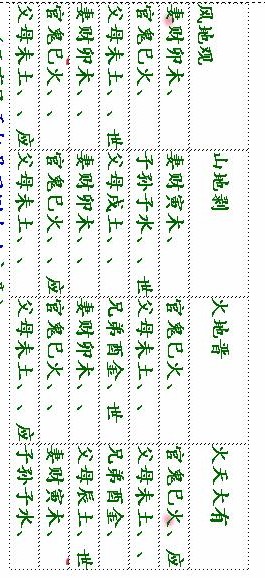 风地观 山地剥 火地晋 火天大有
妻财卯木、 妻财寅木、 官鬼巳火、 官鬼巳火、应
官鬼巳火、 子孙子水、、世 父母未土、、 父母未土、、
父母未土、、世 父母戌土、、 兄弟酉金、世 兄弟酉金、
妻财卯木、、 妻财卯木、、 妻财卯木、、 父母辰土、世
官鬼巳火、、 官鬼巳火、、应 官鬼巳火、、 妻财寅木、
父母未土、、应 父母未土、、 父母未土、、应 子孙子水、